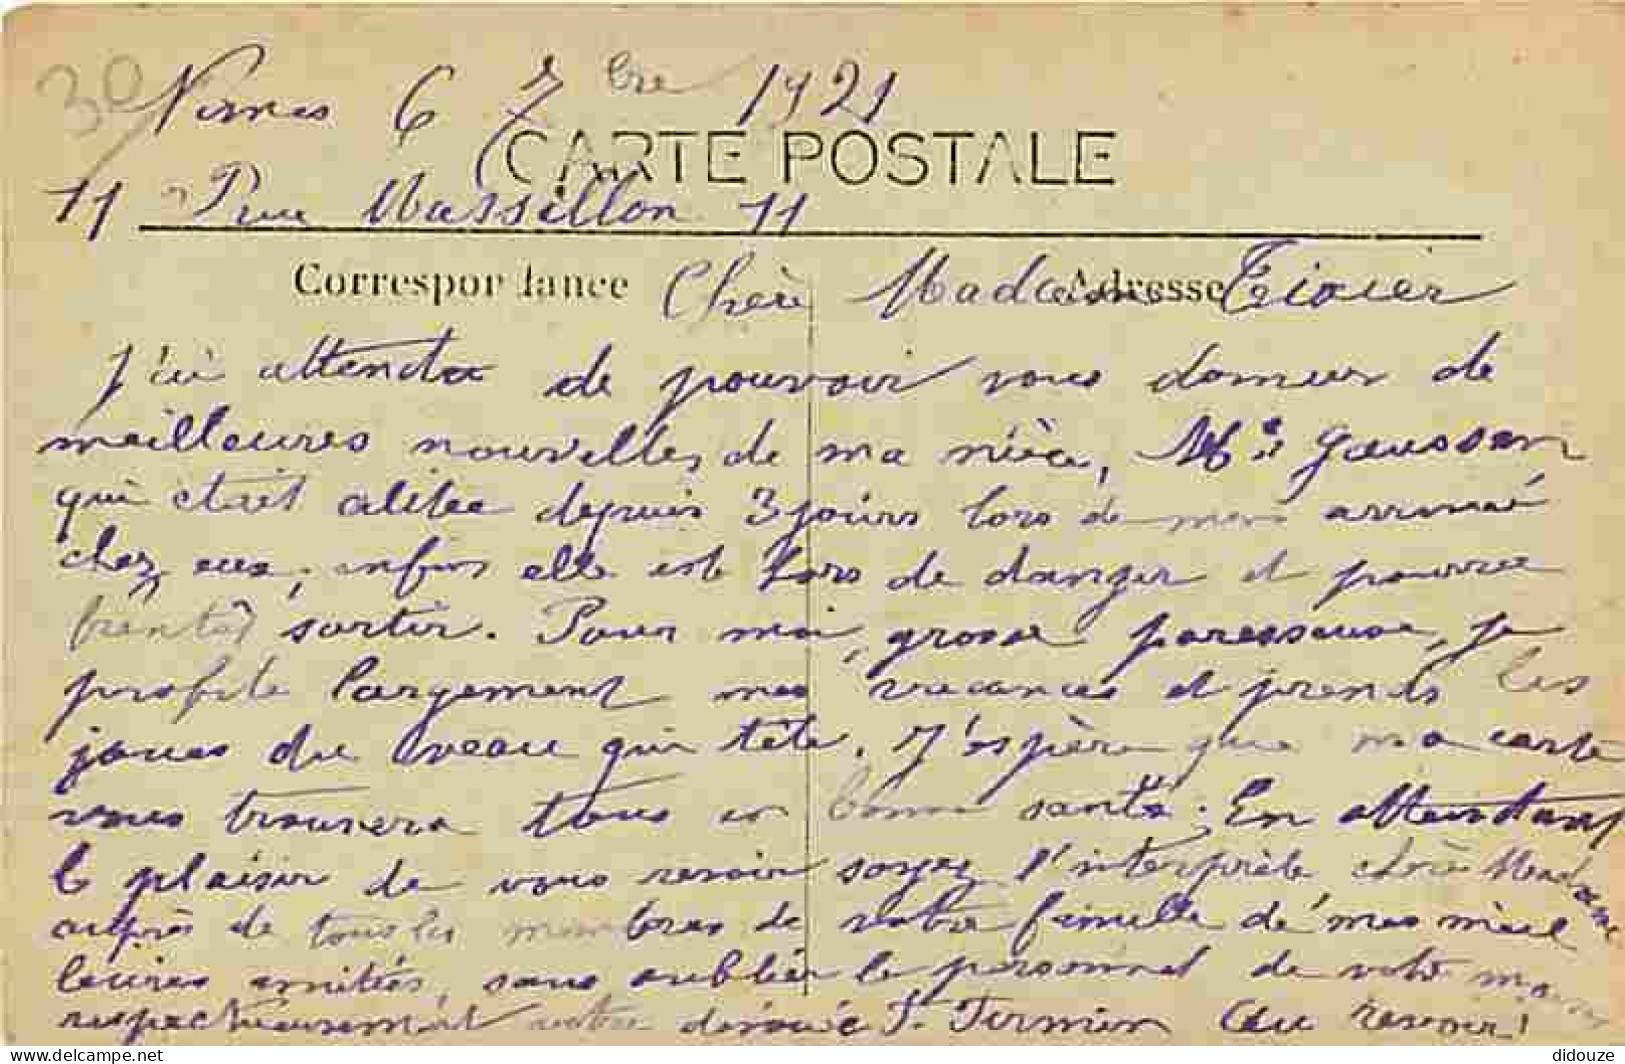 30
Nimes 6 7bre 1921
CARTE POSTALE
11 Rue Massillon 11
Correspondance Adresse
Chère Madame
J'ai attendu de pouvoir vous donner de
meilleures nouvelles de ma nièce, Me Gaussen
qui était alitée depuis 3 jours lors de mon arrivée
chez eux, enfin elle est hors de danger et pourra
bientôt sortir. Pour moi, grosse paresseuse, je
profite largement mes vacances et prends les
joues du veau qui tète. J'espère que ma carte
vous trouvera tous en bonne santé. En attendant
le plaisir de vous revoir soyez l'interprète chère Madame
auprès de tous les membres de votre famille de mes meil
leures amitiés, sans oublier le personnel de votre
respectueusement votre dévouée J. Firmin (au revoir!
didouze